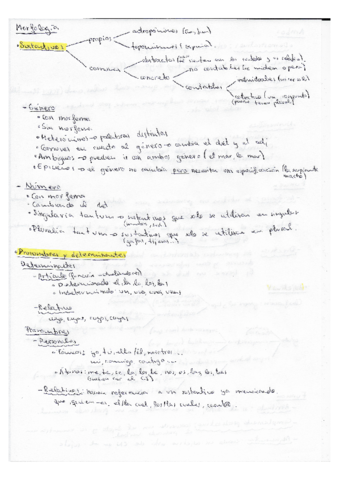 Morfología
• Sustantivos
propios
antropónimos
topónimos (España)
comunes
abstractos
concreto
no contables
contables
individuales
colectivo
- Género
• Con morfema
• Sin morfema
• Heterónimos → palabras distintas
• Comunes en cuanto al género → cambia el det y el adj
• Ambiguos → pueden ir con ambos género (el mar, la mar)
• Epicenos → el género no cambia pero necesita una especificación (la serpiente macho)
- Número
• Con morfema
• Cambiando el det
• Singularia tantum → sustantivos que solo se utilizan en singular
• Pluralia tantum → sustantivos que solo se utilizan en plural
(gafas, tijeras...)
• Pronombres y determinantes
Determinantes
- Artículo
• Determinado el, la, lo, los, las
• Indeterminado un, una, unos, unas
- Relativo
cuyo, cuya, cuyos, cuyas
Pronombres
- Personales
• Tónicos: yo, tú, ella/él, nosotros...
mí, conmigo, contigo...
• Átonos: me, te, se, lo, la, le, nos, os, los, las, les
- Relativos: hacen referencia a un sustantivo ya mencionado
que, quienes, el/la cual, los/las cuales,